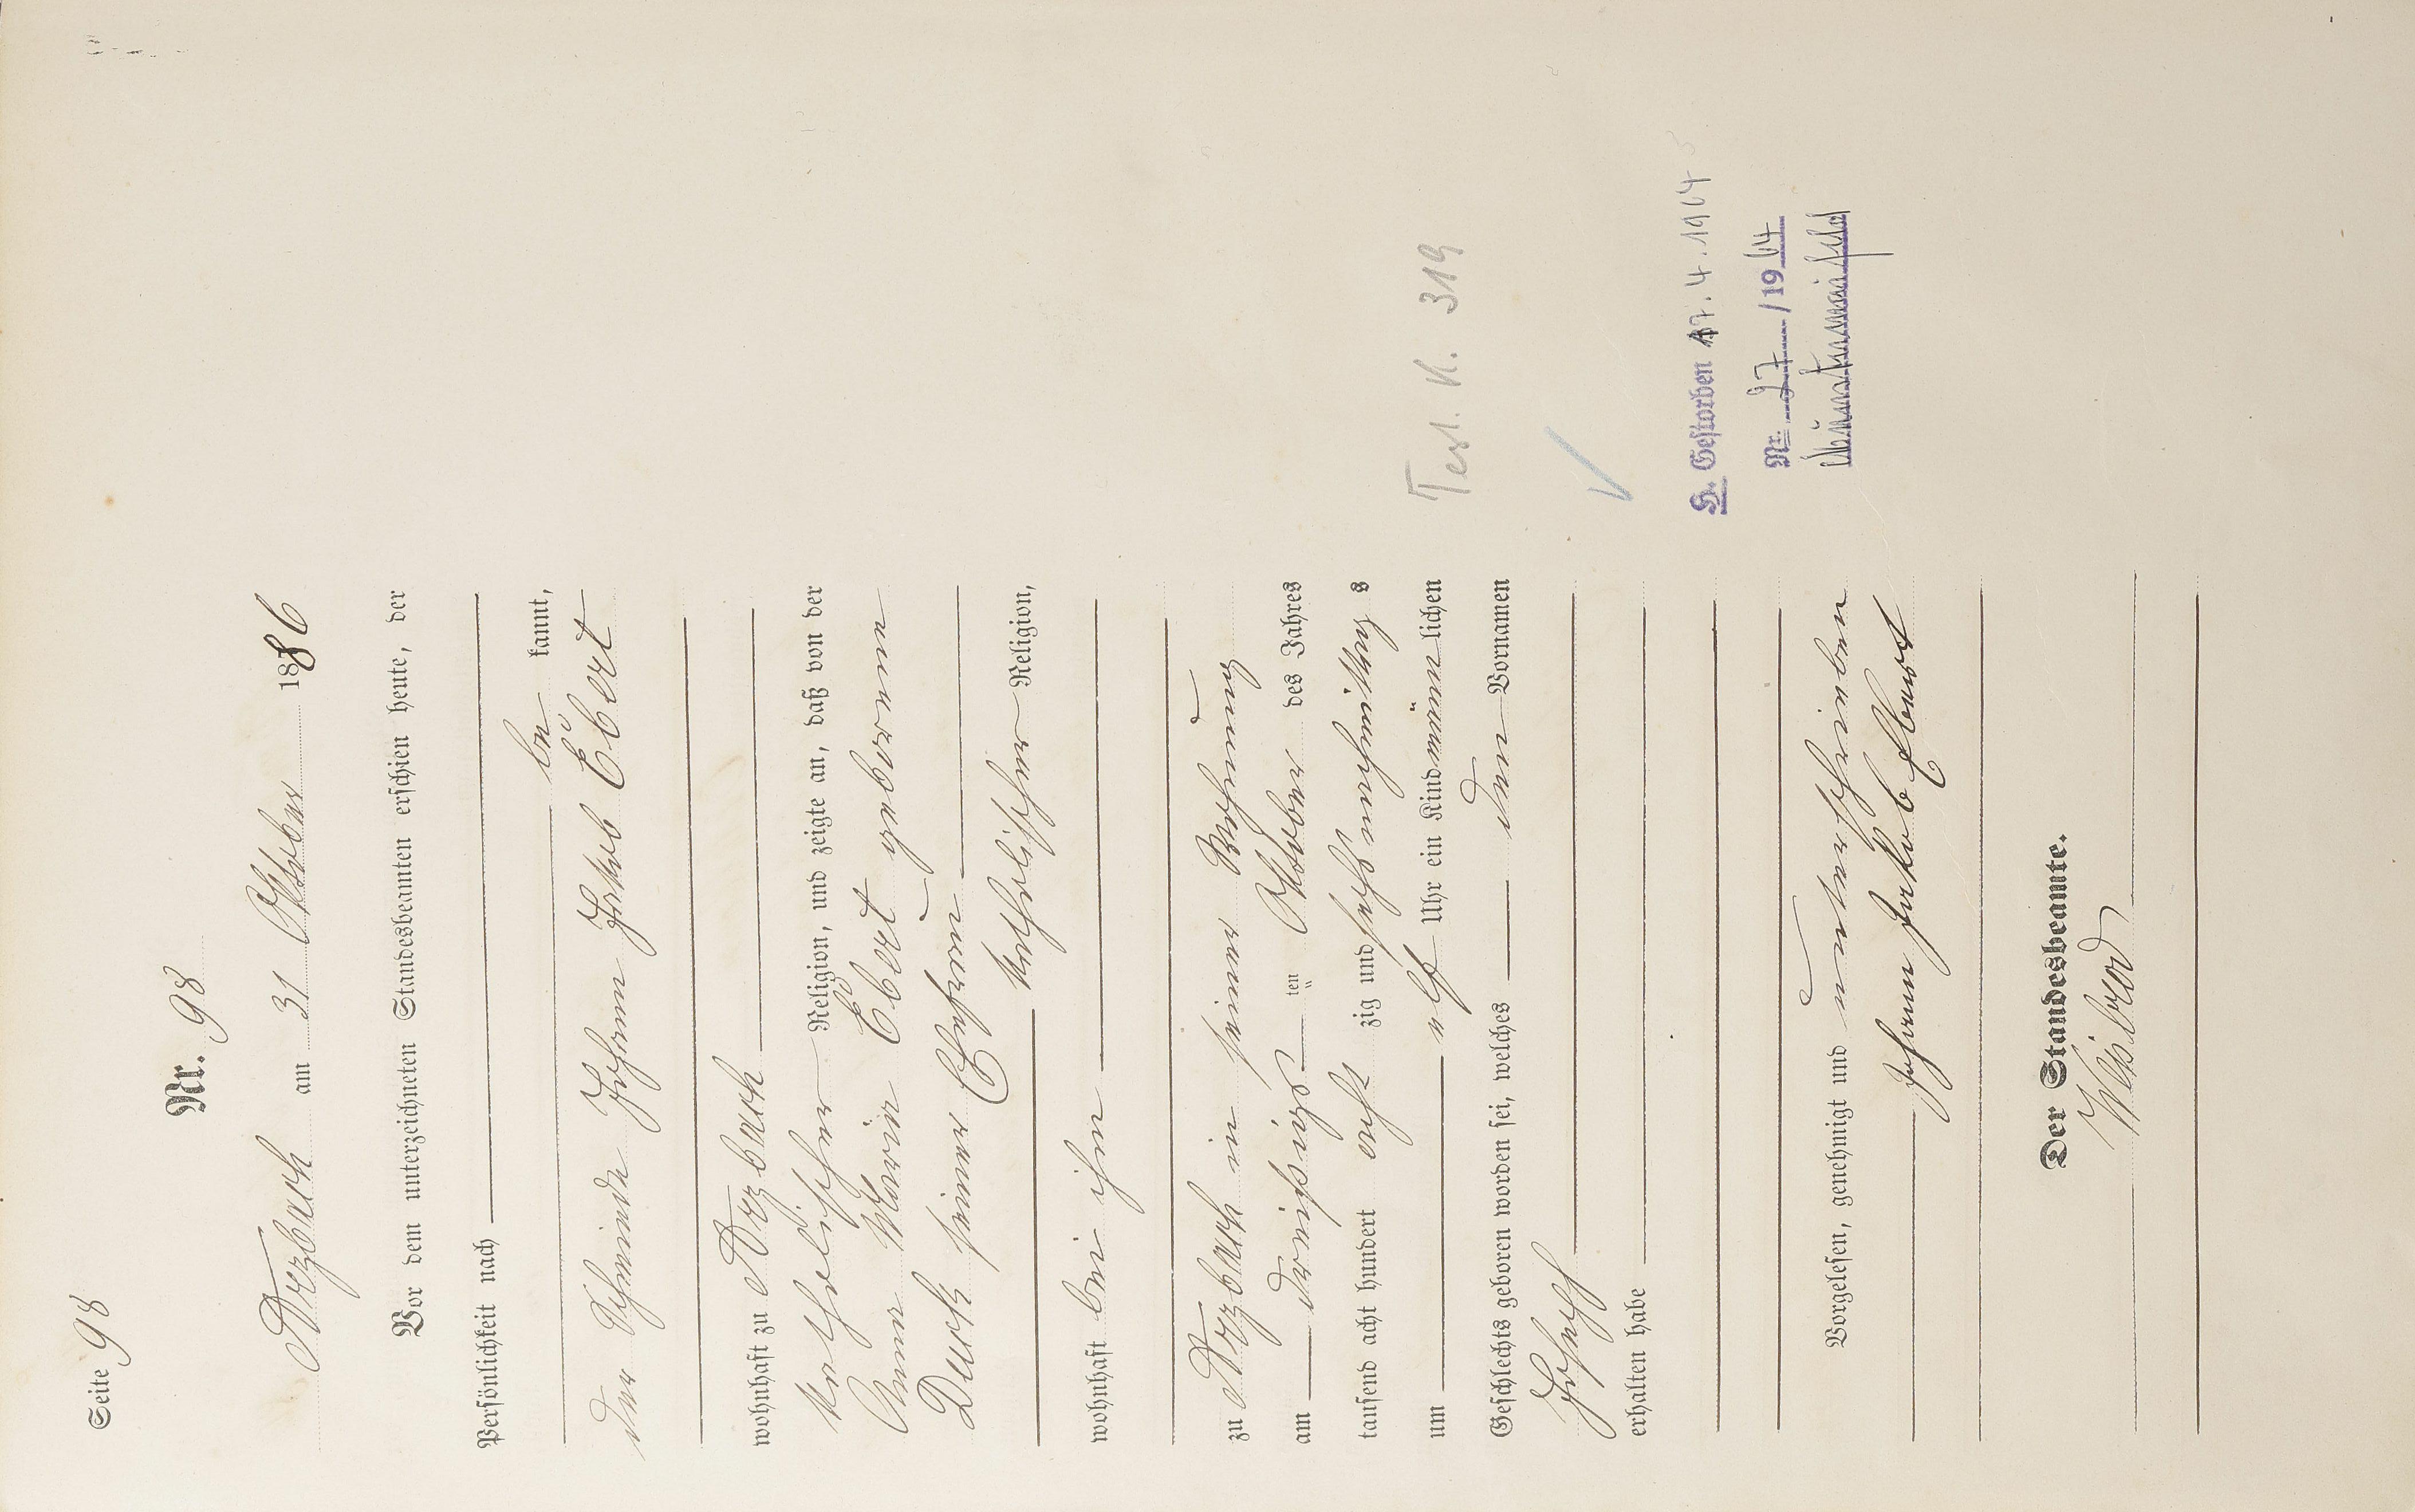 Seite 98
Nr. 98
Arzbach am 31 Oktober 1886
Vor dem unterzeichneten Standesbeamten erschien heute, der
Persönlichkeit nach
be kannt,
der Johann Jakob Ebert
wohnhaft zu Arzbach
katholischer Religion, und zeigte an, daß von der
Anna Maria Ebert geborene
seiner Ehefrau
katholischer Religion,
wohnhaft bei ihm
zu Arzbach in seiner Wohnung
am dreißigsten Oktober des Jahres
tausend acht hundert acht zig und sechs s
um elf Uhr ein Kind männlichen
Geschlechts geboren worden sei, welches den Vornamen
Joseph
erhalten habe
Test. K. 319
H. Gestorben 17.4.1964
Nr. 27/1964
Vorgelesen, genehmigt und unterschrieben
Johann Jakob Ebert
Der Standesbeamte.